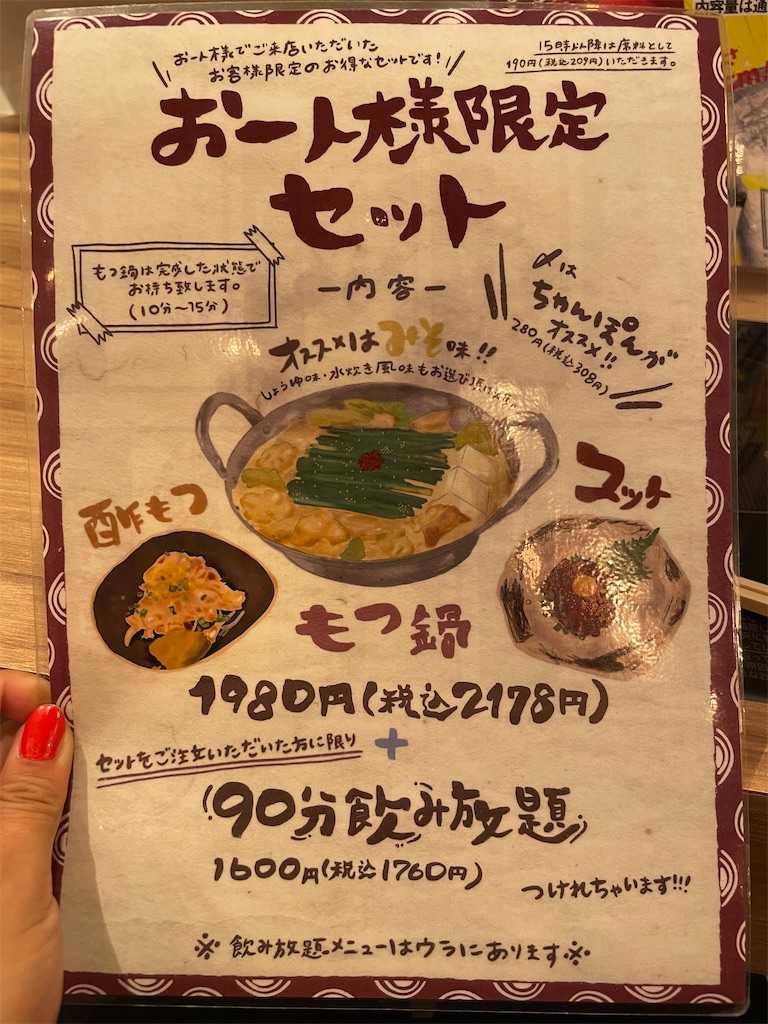 内容量は通
お一人様でご来店いただいた
お客様限定のお得なセットです!
15時以降は席料として
190円(税込209円)いただきます。
お一人様限定
セット
もつ鍋は完成した状態で
お待ち致します。
(10分〜15分)
ー内容ー
〆は
ちゃんぽんが
オススメ!!
280円(税込308円)
オススメはみそ味!!
しょうゆ味・水炊き風味もお選び頂けます。
酢もつ
ユッケ
もつ鍋
1980円(税込2178円)
セットをご注文いただいた方に限り
+
90分飲み放題
1600円(税込1760円)
つけれちゃいます!!!
※飲み放題メニューはウラにあります※